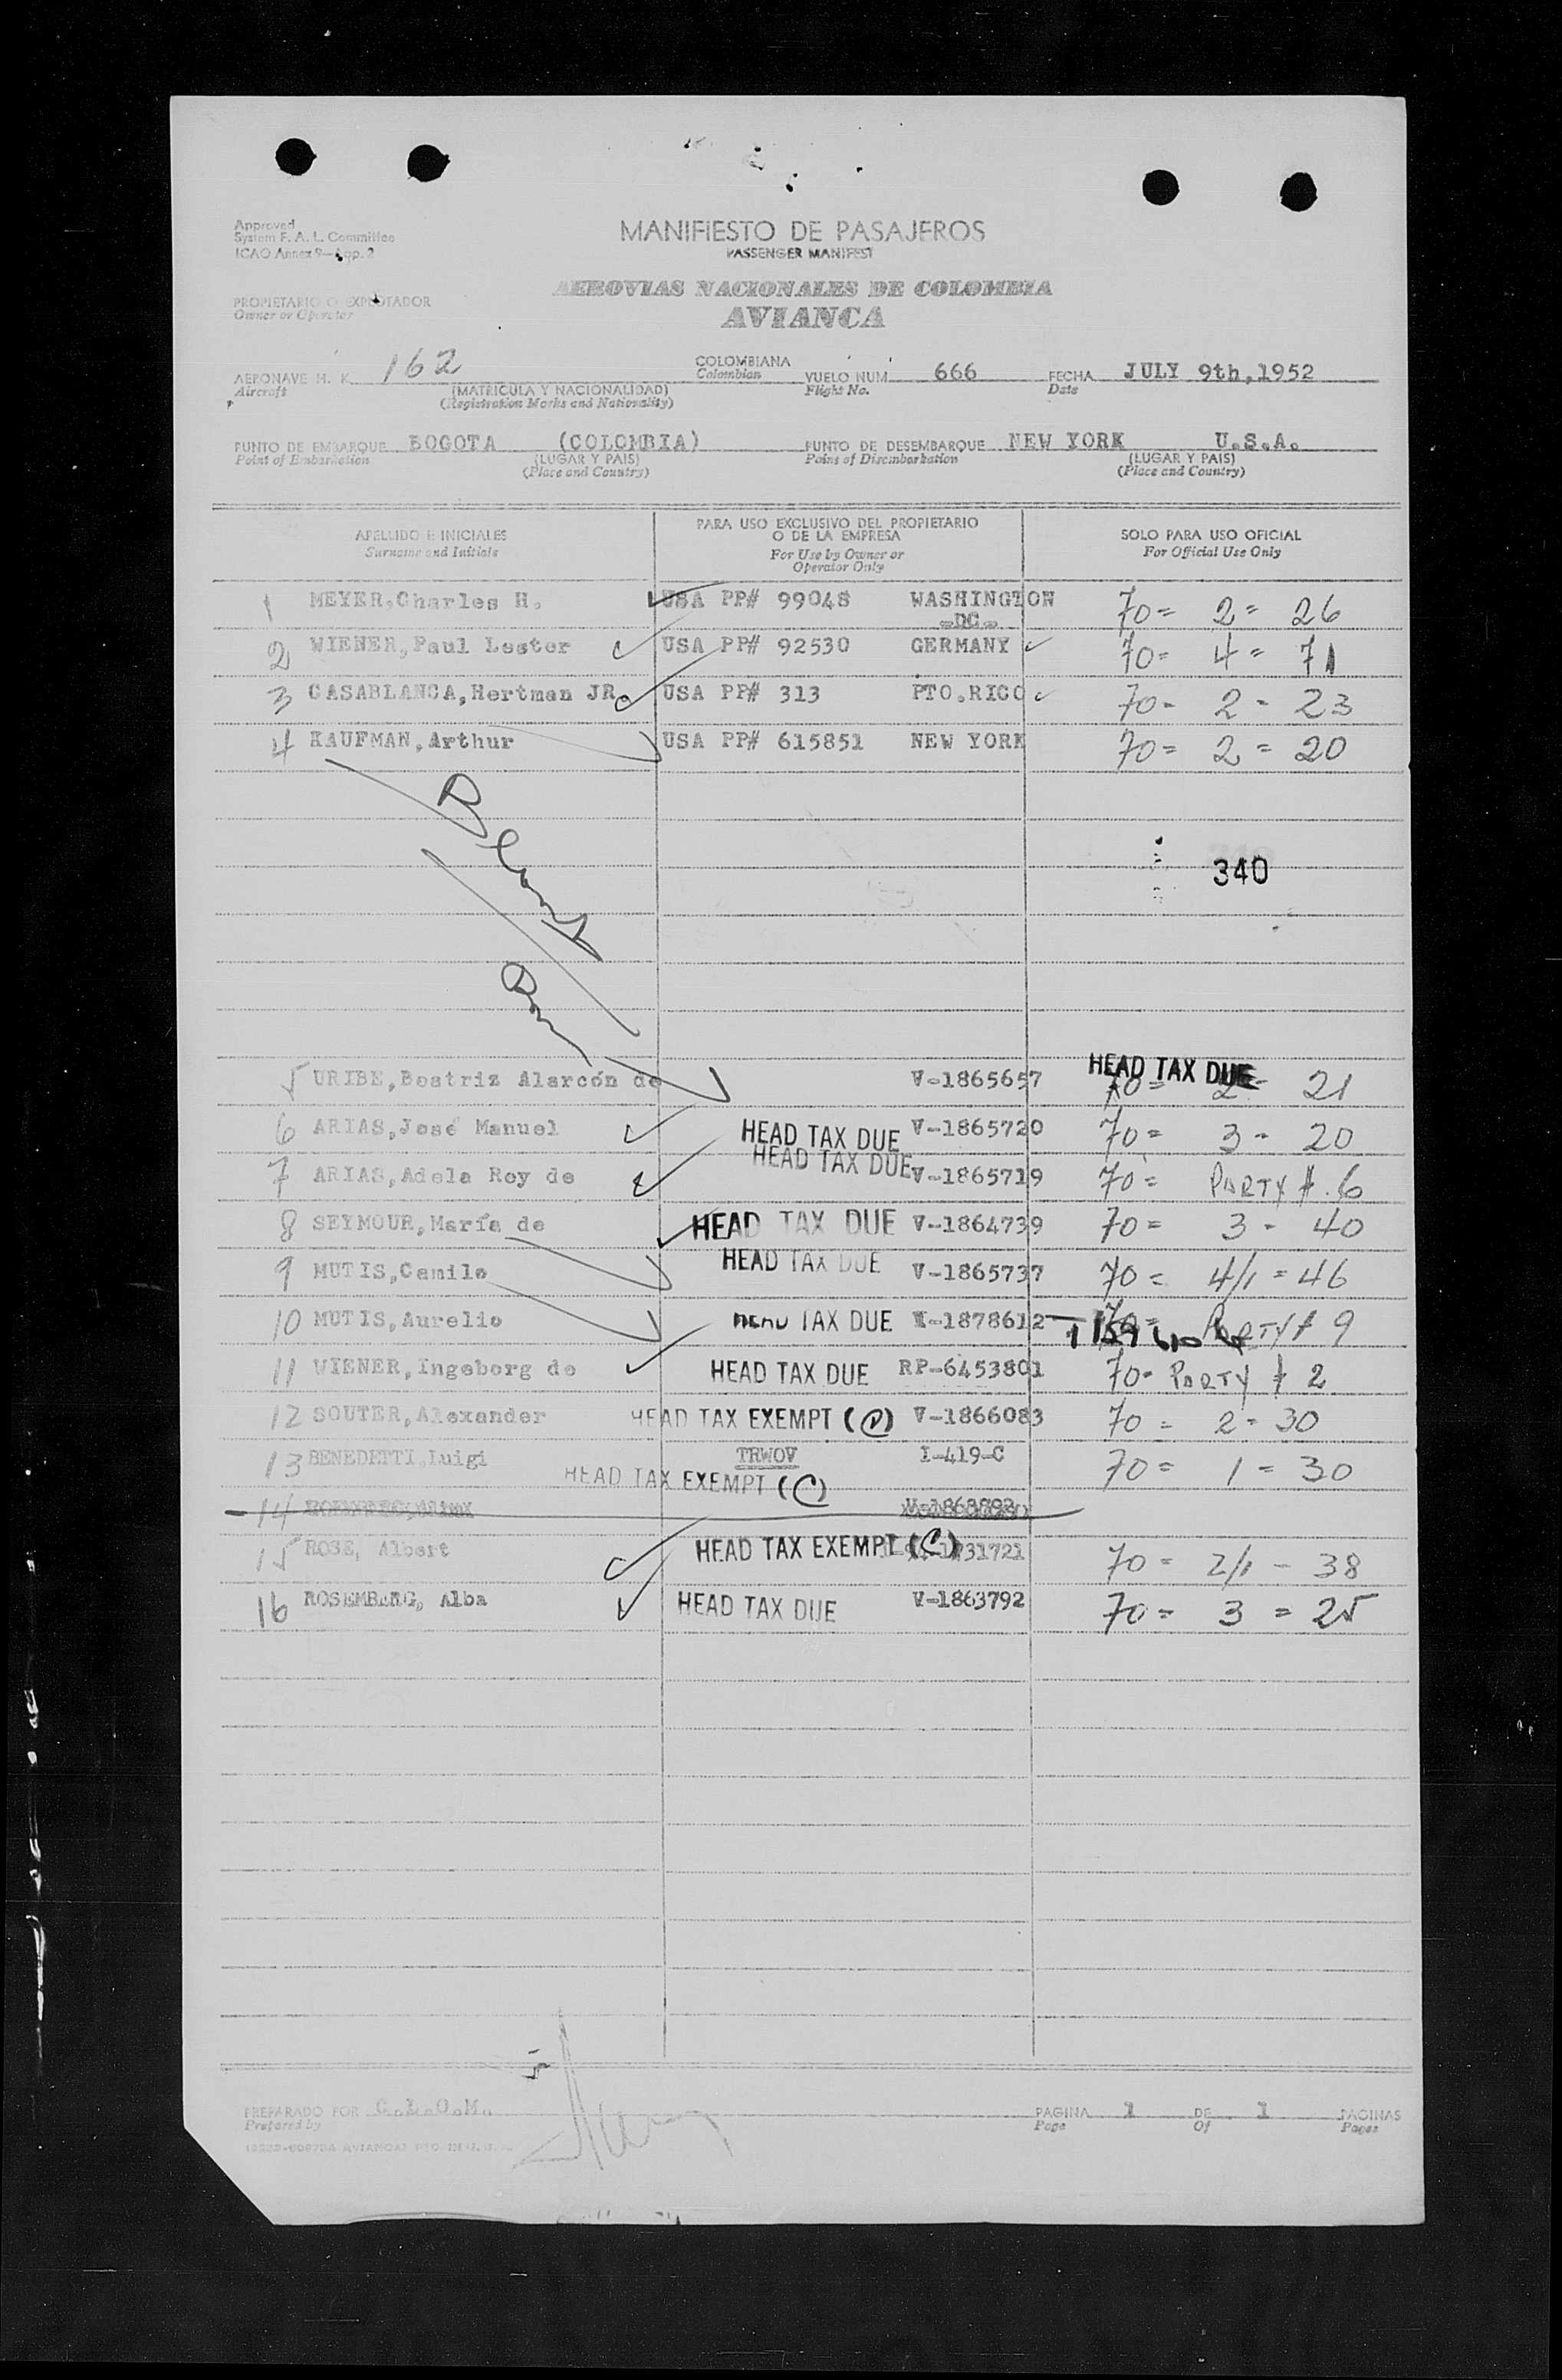 Approved
System F. A. L. Committee
ICAO Annex 9—App. 2
MANIFIESTO DE PASAJEROS
PASSENGER MANIFEST
AEROVIAS NACIONALES DE COLOMBIA
AVIANCA
PROPIETARIO O EXPLOTADOR
Owner or Operator
AERONAVE H. K. 162 COLOMBIANA VUELO NUM 666 FECHA JULY 9th,1952
Aircraft (MATRICULA Y NACIONALIDAD) Colombian Flight No. Date
(Registration Marks and Nationality)
PUNTO DE EMBARQUE BOGOTA (COLOMBIA) PUNTO DE DESEMBARQUE NEW YORK U.S.A.
Point of Embarkation (LUGAR Y PAIS) Point of Disembarkation (LUGAR Y PAIS)
(Place and Country) (Place and Country)
APELLIDO E INICIALES PARA USO EXCLUSIVO DEL PROPIETARIO O DE LA EMPRESA SOLO PARA USO OFICIAL
Surname and Initials For Use by Owner or Operator Only For Official Use Only
1 MEYER,Charles H. USA PP# 99048 WASHINGTON 70= 2= 26
DC
2 WIENER,Paul Lester USA PP# 92530 GERMANY 70= 4= 71
3 CASABLANCA,Hertman JR. USA PP# 313 PTO.RICO 70- 2- 23
4 KAUFMAN,Arthur USA PP# 615851 NEW YORK 70= 2= 20
340
HEAD TAX DUE
5 URIBE,Beatriz Alarcón de V-1865657 70= 2- 21
6 ARIAS,José Manuel HEAD TAX DUE V-1865720 70= 3- 20
7 ARIAS,Adela Roy de HEAD TAX DUE V-1865719 70= PARTY #.6
8 SEYMOUR,María de HEAD TAX DUE V-1864739 70= 3- 40
9 MUTIS,Camilo HEAD TAX DUE V-1865737 70= 4/1=46
10 MUTIS,Aurelio HEAD TAX DUE -1878612 70= PARTY # 9
11 WIENER,Ingeborg de HEAD TAX DUE RP-6453801 70- PARTY # 2
12 SOUTER,Alexander HEAD TAX EXEMPT V-1866083 70= 2- 30
13 BENEDETTI,Luigi TRWOV I-419-C 70= 1= 30
HEAD TAX EXEMPT (C)
14
15 ROSE, Albert HEAD TAX EXEMPT (C) 70= 2/1- 38
16 ROSEMBERG, Alba HEAD TAX DUE V-1863792 70= 3 =25
PREPARADO POR C.L.O.M. PAGINA 1 DE 1 PAGINAS
Prepared by Page Of Pages